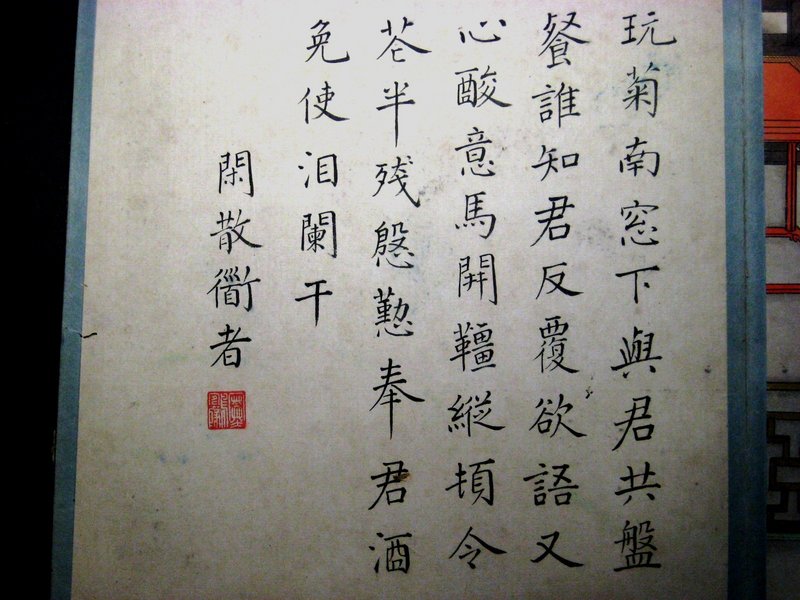 玩菊南窓下與君共盤
餐誰知君反覆欲語又
心酸意馬開韁縱頓令
花半残慇懃奉君酒
免使泪闌干
閑散衜者